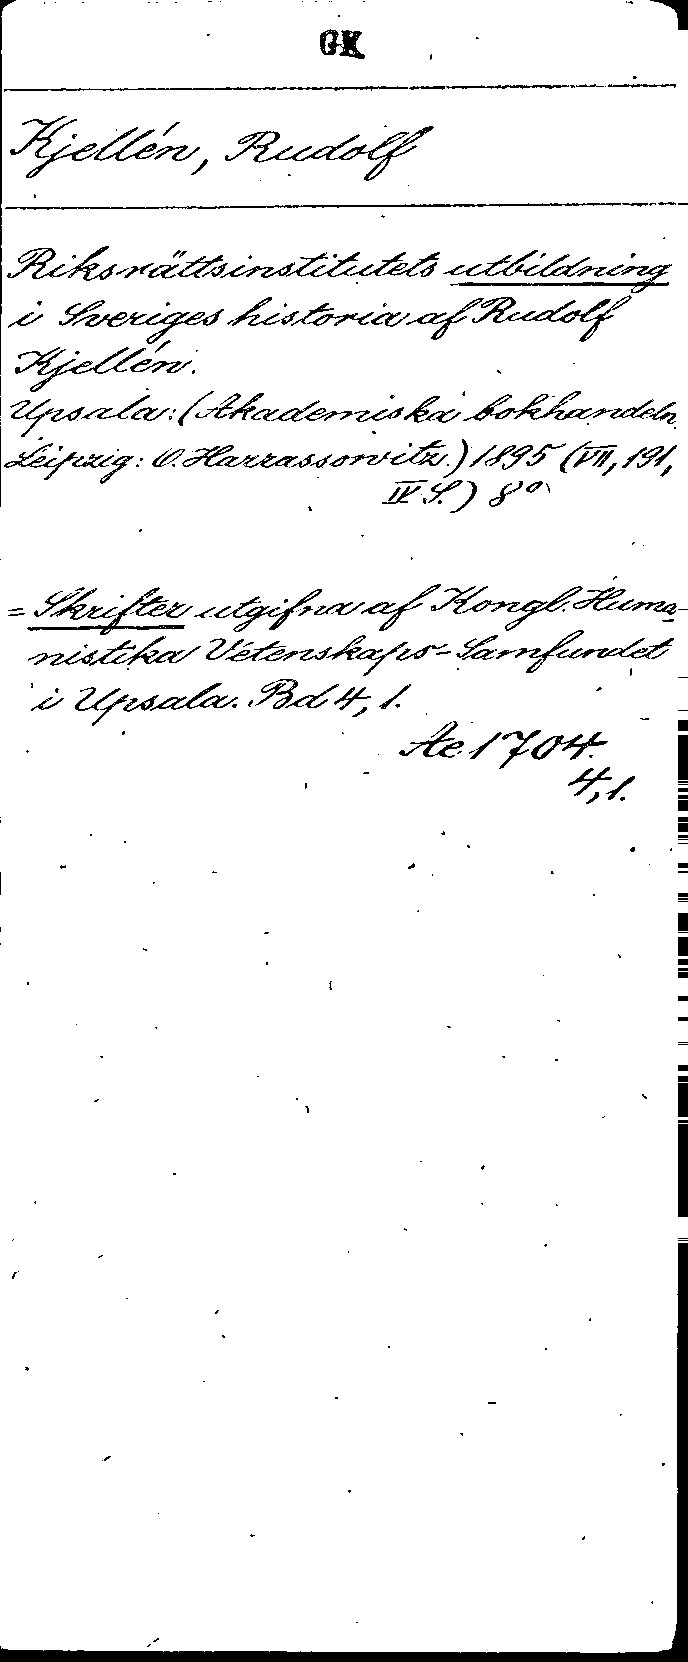 GK
Kjellén, Rudolf
Riksrättsinstitutets utbildning
i Sveriges historia af Rudolf
Kjellén.
Upsala: (Akademiska bokhandeln,
Leipzig: O. Harrassowitz.) 1895 (VII, 191,
IV S.) 8°
= Skrifter utgifna af Kongl. Huma-
nistika Vetenskaps-Samfundet
i Upsala. Bd 4, 1.
Ae 1704.
4,1.